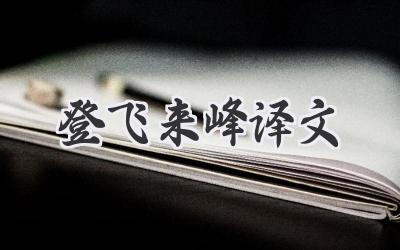 登飞来峰译文